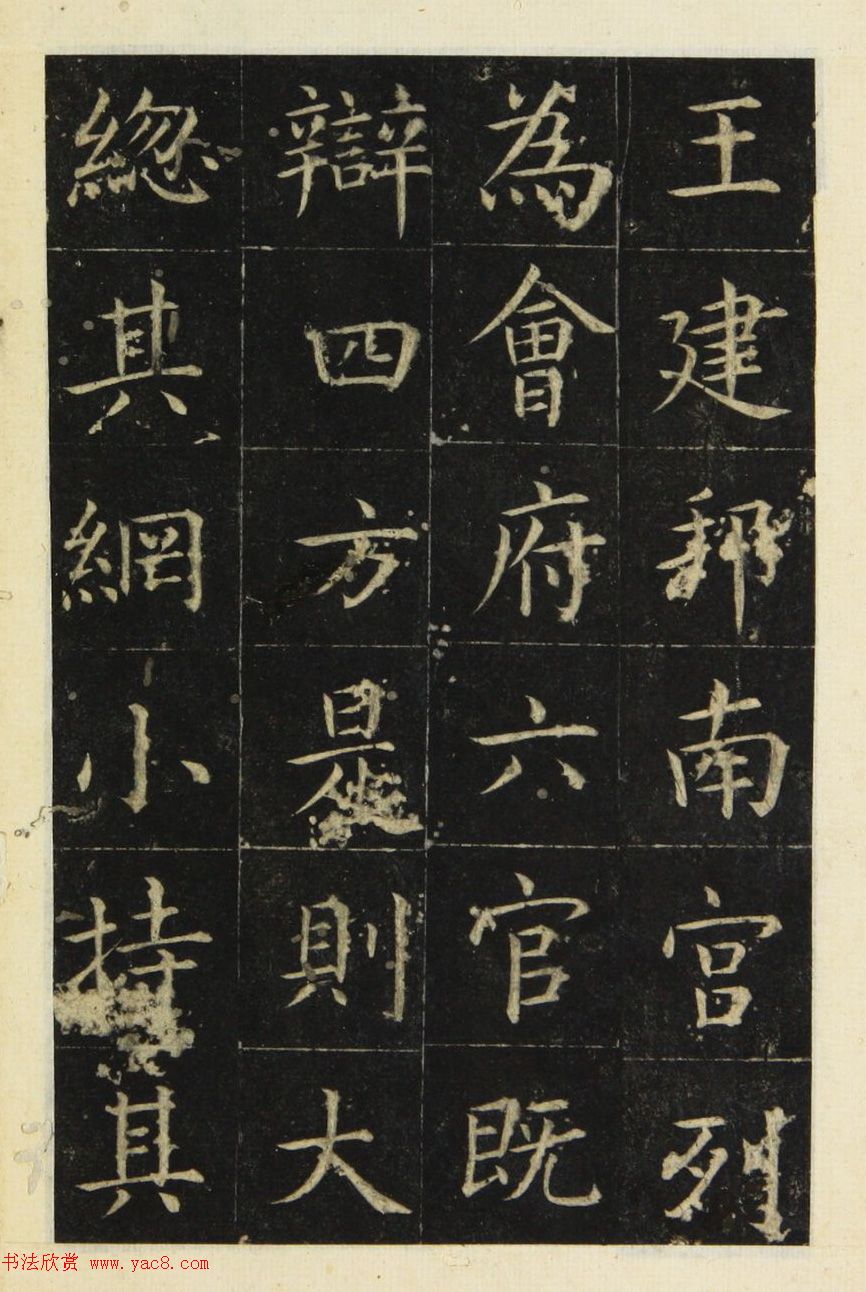 王建邦南宮列
為會府六官既
辯四方是則大
緫其綱小持其
书法欣赏 www.yac8.com